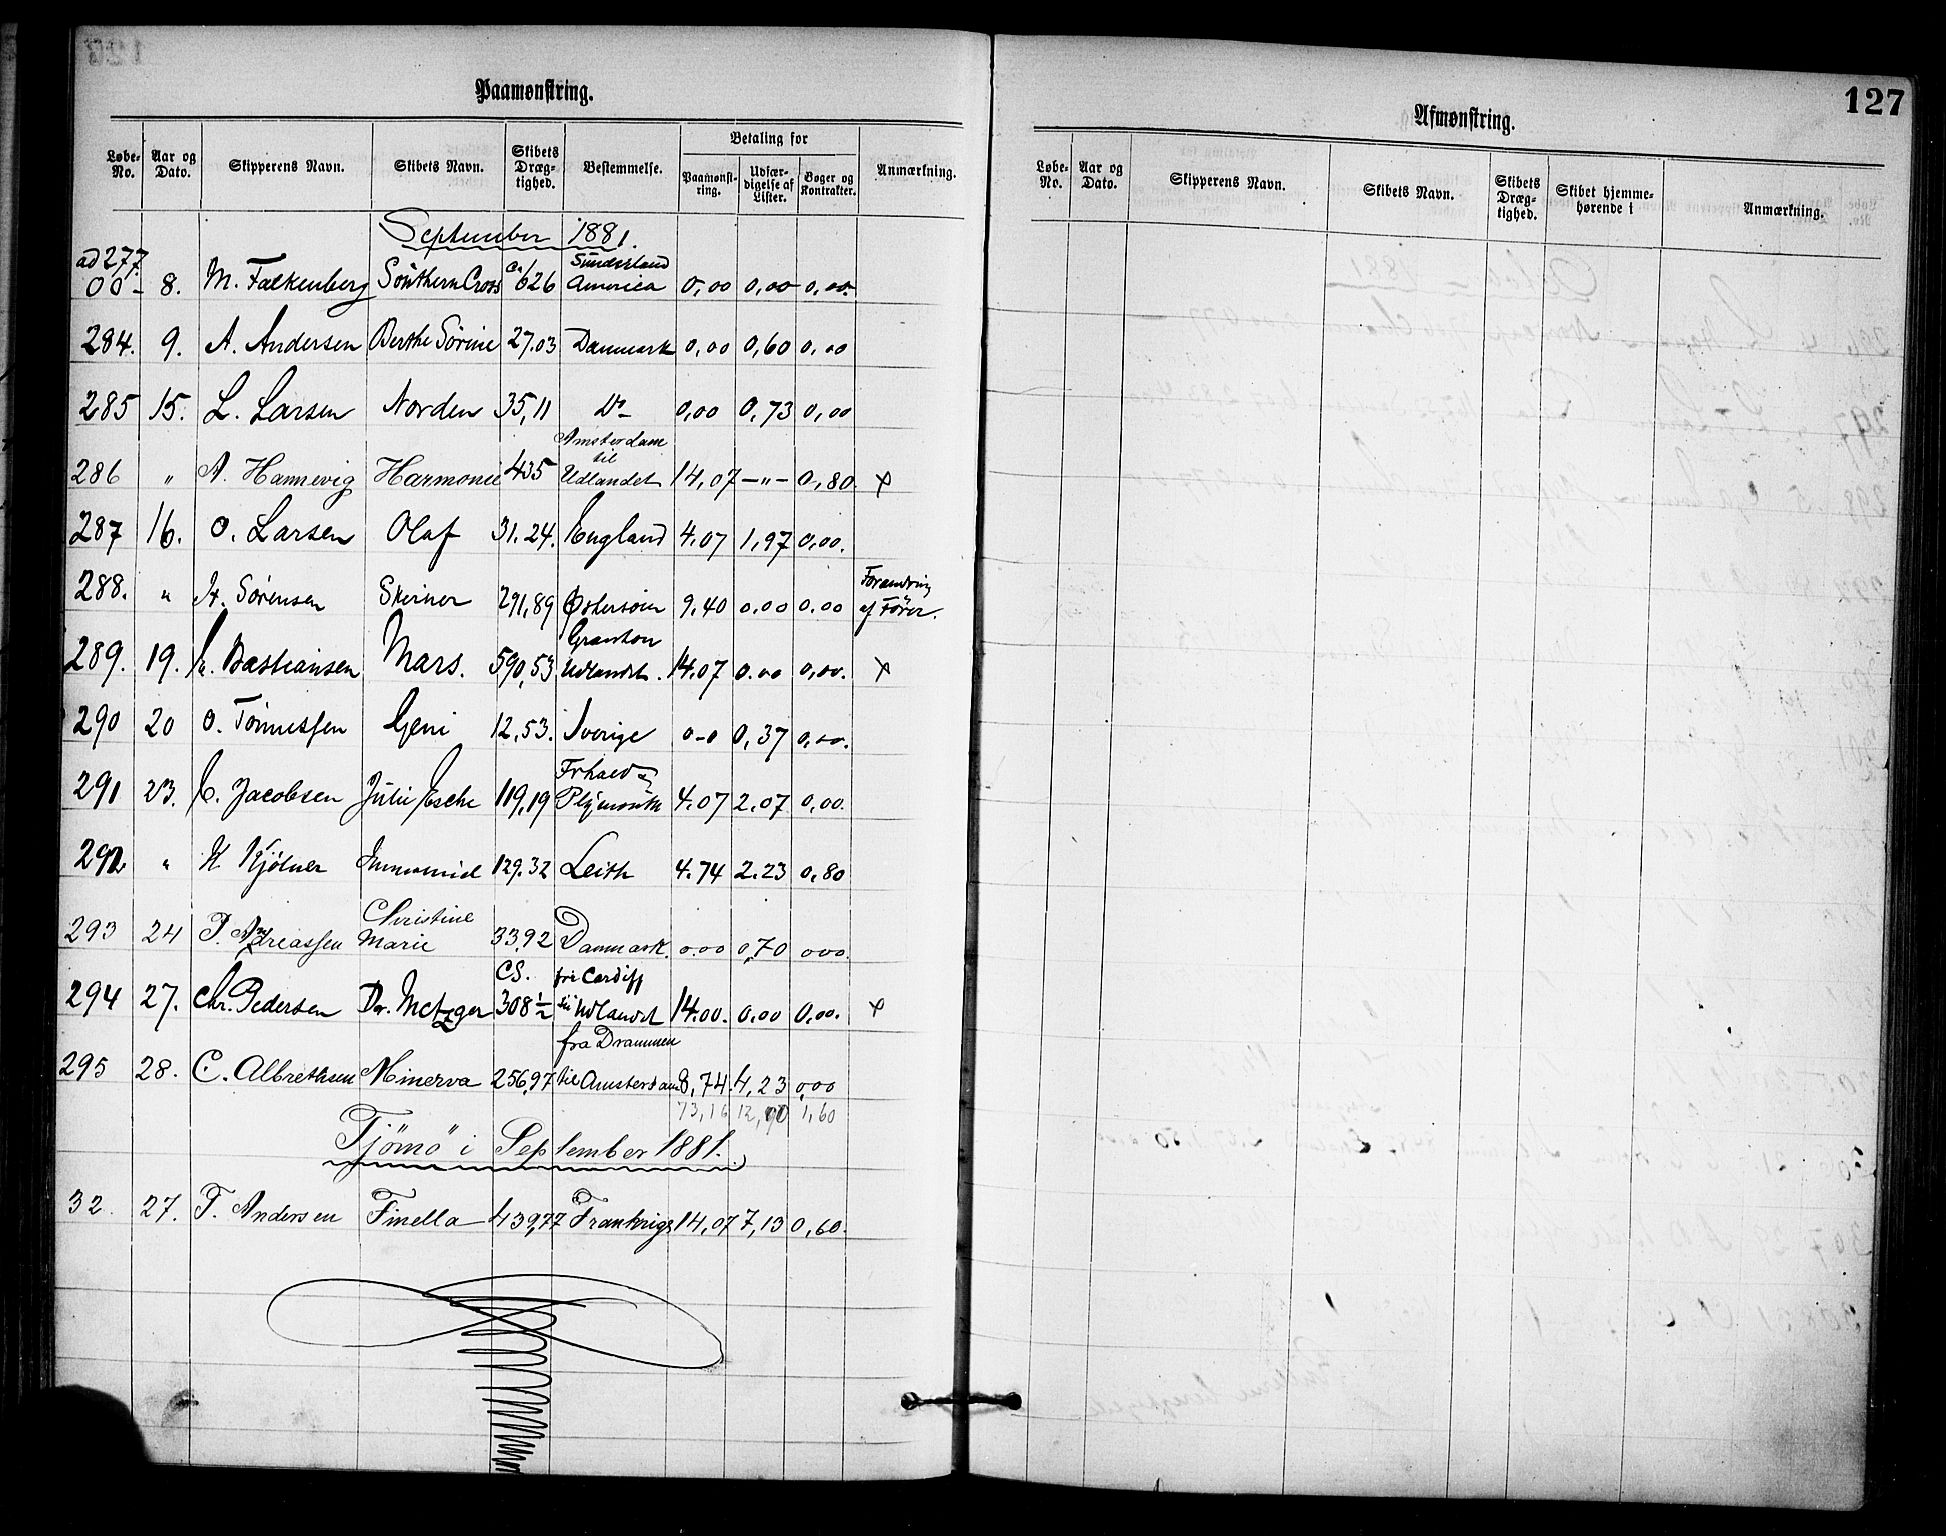 Paamønstring.
Løbe-No. Aar og Dato. Skipperens Navn. Skibets Navn. Skibets Dræg-tighed. Bestemmelse. Betaling for Paamønst-ring. Udfær-digelse af Lister. Bøger og Kontrakter. Anmærkning.
September 1881.
ad 277 Sunderland
00- 8. M. Falkenberg Southern Cross 626 America 0,00 0,00 0,00.
284. 9. A. Andersen Berthe Sørine 27.03 Danmark 0,00 0,60 0,00
285 15. L. Larsen Norden 35,11 Do 0,00 0,73 0,00
Amsterdam
til
286 " A. Hannevig Harmonie 435 Udlandet 14,07 -"- 0,80. +
287 16. O. Larsen Olaf 31.24. England 4.07 1,97 0,00.
Forandring
288. " H. Sørensen Skirner 291,89 Østersøen 9.40 0.00 0.00 af Fører.
Granton
289. 19. Bastiansen Mars. 590,53 Udlandet. 14.07 0.00 0,00. +
290 20 O. Tönnessen Geni 12,53. Sverige 0-0 0,37 0,00.
291 23. C. Jacobsen Julie Esche 119,19 Plymouth 4.07 2.07 0,00.
292 " H Kjølner 129.32 Leith 4.74 2.23 0,80
Christine
293 24 P. Andreassen Marie 33,92 Danmark. 0.00 0,70 000.
CS. fra Cardiff
294 27. Chr. Pedersen Dr. Metzger 308 1/2 til Udlandet 14.00. 0.00 0,00. +
fra Drammen
295 28. C. Albrethsen Minerva 256,97 til Amsterdam 8,74 4,23 0,00
73,16 12,90 1,60
Tjömö i September 1881.
32. 27. T. Andersen Finella 439,77 Frankrige 14,07 7,13 0,60.
127
Afmønstring.
Løbe-No. Aar og Dato. Skipperens Navn. Skibets Navn. Skibets Dræg-tighed. Skibet hjemme-hørende i Anmærkning.